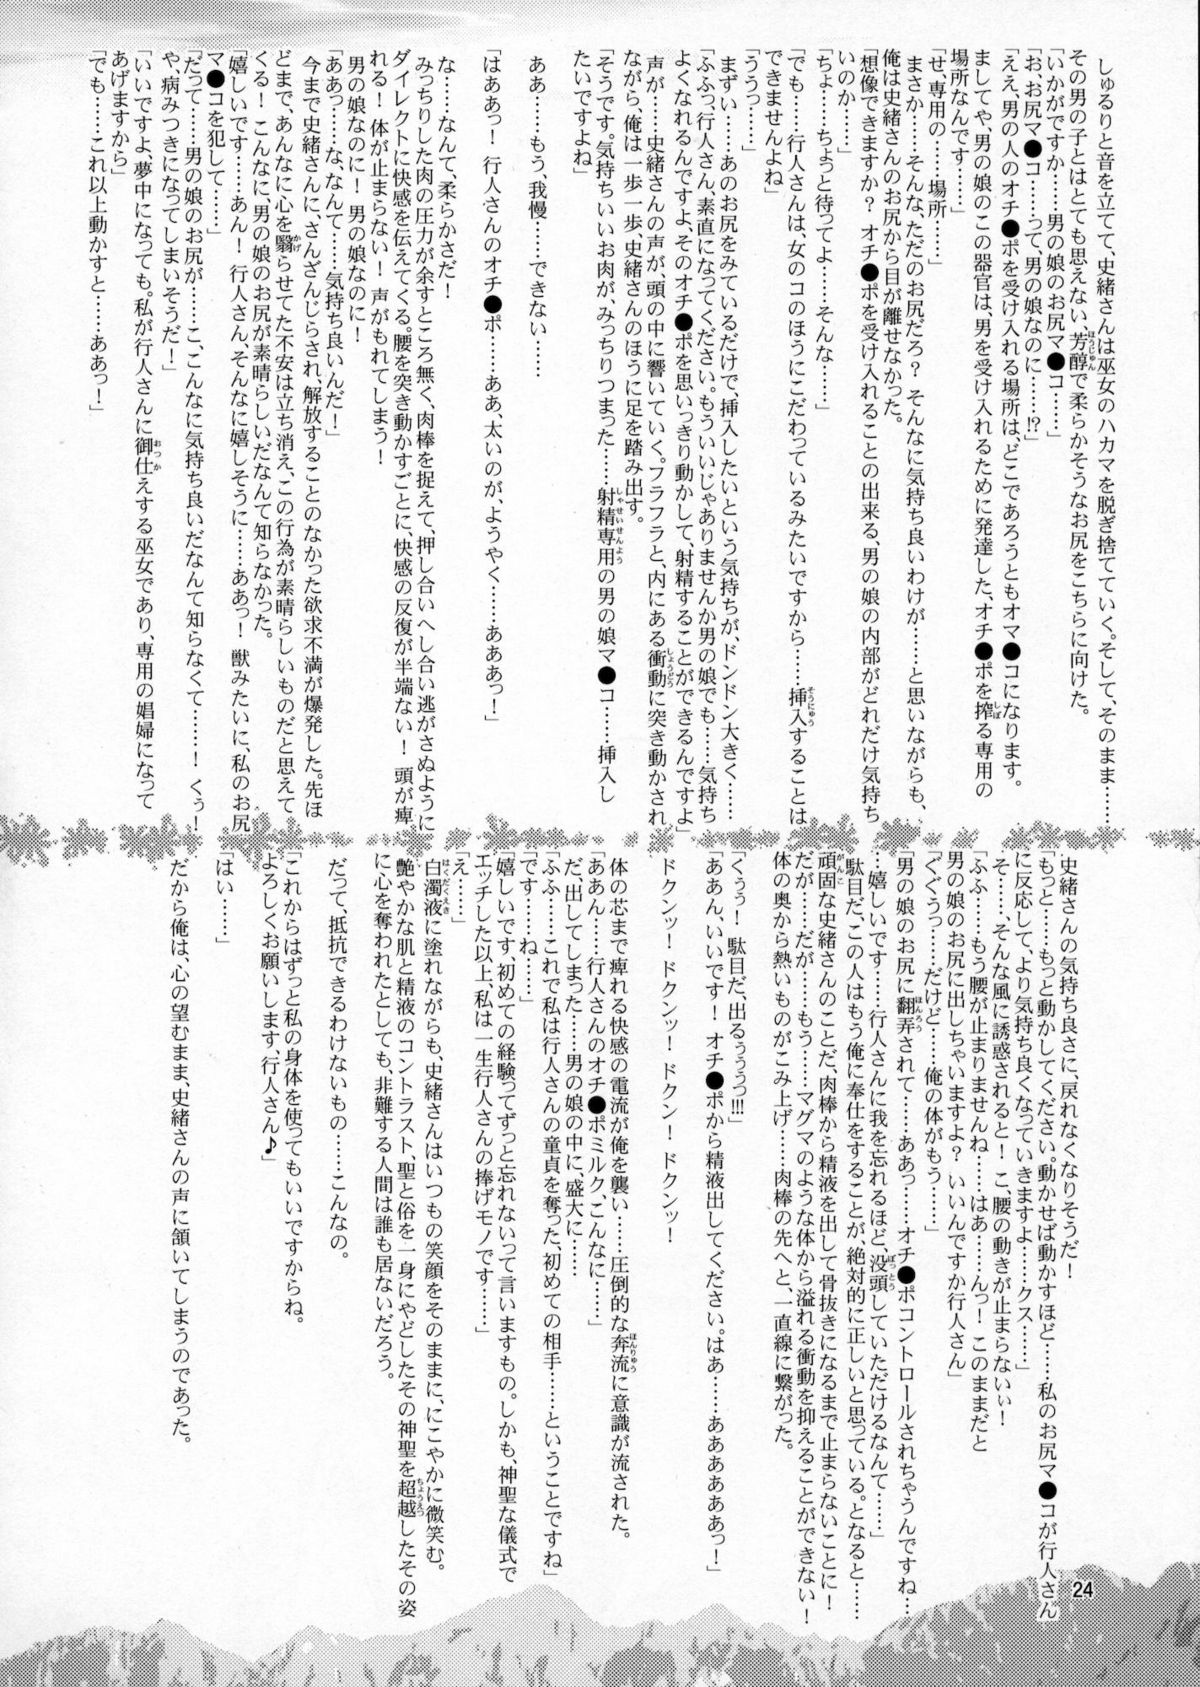 しゅるりと音を立てて、史緒さんは巫女のハカマを脱ぎ捨てていく。そして、そのまま……
その男の子とはとても思えない、芳醇で柔らかそうなお尻をこちらに向けた。
「いかがですか……男の娘のお尻マ●コ……」
「お、お尻マ●コ……って、男の娘なのに……!?」
「ええ、男の人のオチ●ポを受け入れる場所は、どこであろうともオマ●コになります。
ましてや、男の娘のこの器官は、男を受け入れるために発達した、オチ●ポを搾る専用の
場所なんです……」
「せ、専用の……場所……」
まさか……そんな、ただのお尻だろ？ そんなに気持ち良いわけが……と思いながらも、
俺は史緒さんのお尻から目が離せなかった。
「想像できますか？ オチ●ポを受け入れることの出来る、男の娘の内部がどれだけ気持ち
いいのか……」
「ちょ……ちょっと待ってよ……そんな……」
「でも……行人さんは、女のコのほうにこだわっているみたいですから……挿入することは
できませんよね」
「ううっ……」
まずい……あのお尻をみているだけで、挿入したいという気持ちが、ドンドン大きく……
「ふふっ、行人さん、素直になってください。もういいじゃありませんか男の娘でも……気持ち
よくなれるんですよ、そのオチ●ポを思いっきり動かして、射精することができるんですよ」
声が……史緒さんの声が、頭の中に響いていく。フラフラと、内にある衝動に突き動かされ
ながら、俺は一歩一歩、史緒さんのほうに足を踏み出す。
「そうです。気持ちいいお肉が、みっちりつまった……射精専用の男の娘マ●コ……挿入し
たいですよね」
ああ……もう、我慢……できない……
「はああっ！ 行人さんのオチ●ポ……ああ、太いのが、ようやく……あああっ！」
な……なんて、柔らかさだ！
みっちりした肉の圧力が余すところ無く、肉棒を捉えて、押し合いへし合い逃がさぬように
ダイレクトに快感を伝えてくる。腰を突き動かすごとに、快感の反復が半端ない！ 頭が痺
れる！ 体が止まらない！ 声がもれてしまう！
男の娘なのに！ 男の娘なのに！
「ああっ……な、なんて……気持ち良いんだ！」
今まで史緒さんに、さんざんじらされ、解放することのなかった欲求不満が爆発した。先ほ
どまで、あんなに心を翳らせてた不安は立ち消え、この行為が素晴らしいものだと思えて
くる！ こんなに、男の娘のお尻が素晴らしいだなんて知らなかった。
「嬉しいです……あん！ 行人さん、そんなに嬉しそうに……ああっ！ 獣みたいに、私のお尻
マ●コを犯して……」
「だって……男の娘のお尻が……こ、こんなに気持ち良いだなんて知らなくて……！ くぅ！
や、病みつきになってしまいそうだ！」
「いいですよ、夢中になっても。私が行人さんに御仕えする巫女であり、専用の娼婦になって
あげますから」
「でも……これ以上動かすと……ああっ！」
史緒さんの気持ち良さに、戻れなくなりそうだ！
「もっと……もっと動かしてください。動かせば動かすほど……私のお尻マ●コが行人さん
に反応して、より気持ち良くなっていきますよ……クス……」
そ……、そんな風に誘惑されると！ こ、腰の動きが止まらないぃ！
「ふふ……もう腰が止まりませんね……はあ……んっ！ このままだと
男の娘のお尻に出しちゃいますよ？ いいんですか行人さん」
「ぐぐうっ……だけど……俺の体がもう……」
「男の娘のお尻に翻弄されて……ああっ……オチ●ポコントロールされちゃうんですね…
…嬉しいです……行人さんに我を忘れるほど、没頭していただけるなんて……」
駄目だ、この人はもう俺に奉仕をすることが、絶対的に正しいと思っている。となると……
頑固な史緒さんのことだ、肉棒から精液を出して骨抜きになるまで止まらないことに！
だが……だが……もう……マグマのような体から溢れる衝動を抑えることができない！
体の奥から熱いものがこみ上げ……肉棒の先へと、一直線に繋がった。
「くうぅ！ 駄目だ、出るぅぅうっ!!!」
「ああん、いいです！ オチ●ポから精液出してください。はあ……ああああああっ！」
ドクンッ！ ドクンッ！ ドクン！ ドクンッ！
体の芯まで痺れる快感の電流が俺を襲い……圧倒的な奔流に意識が流された。
「ああん……行人さんのオチ●ポミルク、こんなに……」
だ、出してしまった……男の娘の中に、盛大に……
「ふふ……これで私は行人さんの童貞を奪った、初めての相手……ということですね」
「です……ね……」
「嬉しいです、初めての経験ってずっと忘れないって言いますもの。しかも、神聖な儀式で
エッチした以上、私は一生行人さんの捧げモノです……」
「え……」
白濁液に塗れながらも、史緒さんはいつもの笑顔をそのままに、にこやかに微笑む。
艶やかな肌と精液のコントラスト、聖と俗を一身にやどしたその神聖を超越したその姿
に心を奪われたとしても、非難する人間は誰も居ないだろう。
だって、抵抗できるわけないもの……こんなの。
「これからはずっと私の身体を使ってもいいですからね。
よろしくお願いします、行人さん♪」
「はい……」
だから俺は、心の望むまま、史緒さんの声に頷いてしまうのであった。
24